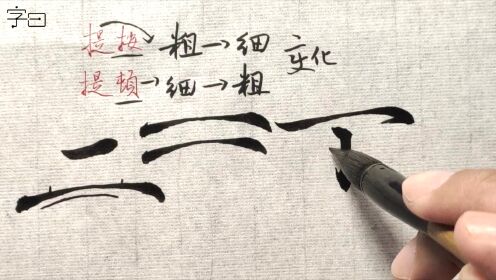 字日
提按 粗→细 变化
提顿→细→粗
二